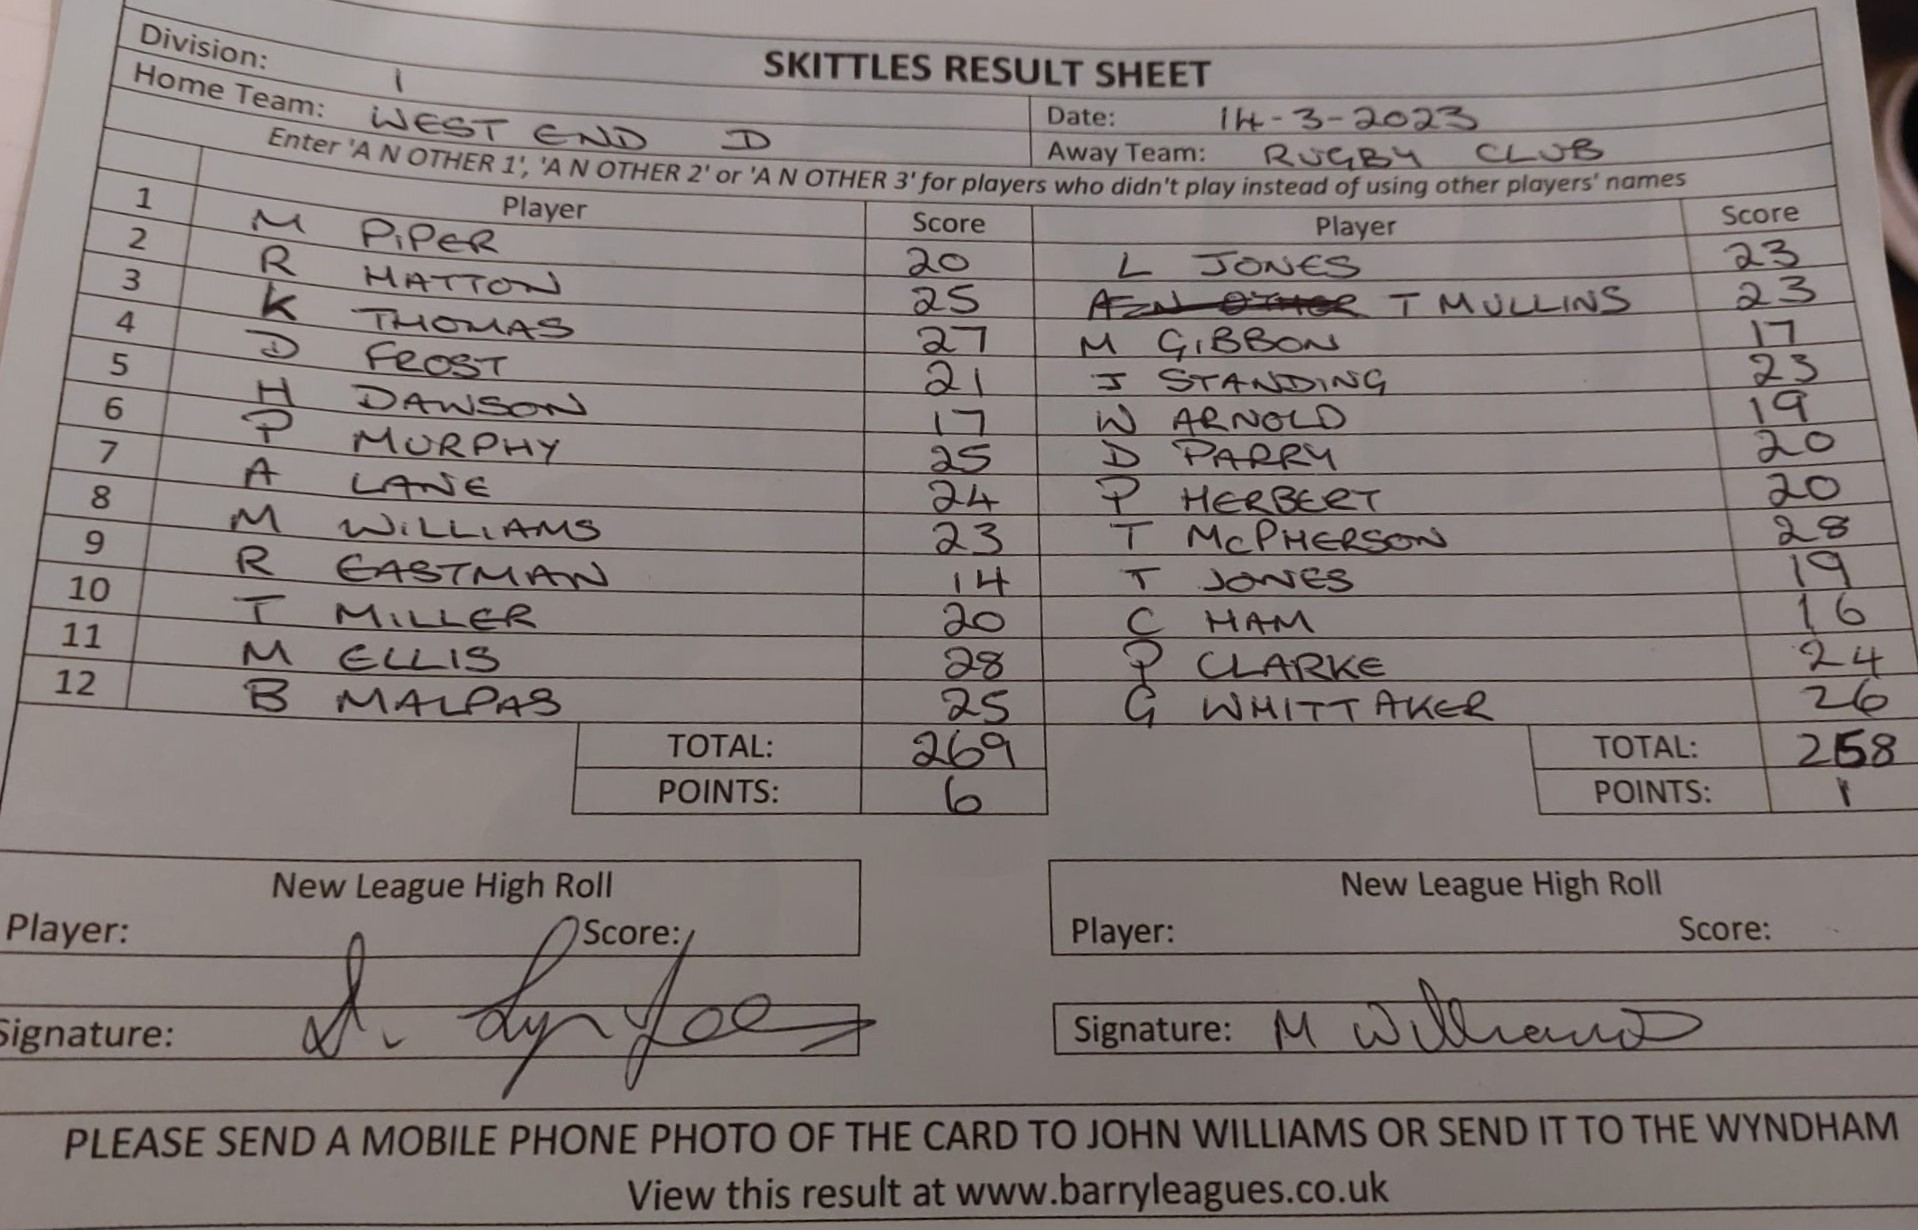 SKITTLES RESULT SHEET
Division: 1
Home Team: WEST END D Date: 14-3-2023
Away Team: RUGBY CLUB
Enter 'A N OTHER 1', 'A N OTHER 2' or 'A N OTHER 3' for players who didn't play instead of using other players' names
Player Score Player Score
1 M PIPER 20 L JONES 23
2 R HATTON 25 T MULLINS 23
3 K THOMAS 27 M GIBBON 17
4 D FROST 21 J STANDING 23
5 H DAWSON 17 W ARNOLD 19
6 P MURPHY 25 D PARRY 20
7 A LANE 24 P HERBERT 20
8 M WILLIAMS 23 T McPHERSON 28
9 R EASTMAN 14 T JONES 19
10 T MILLER 20 C HAM 16
11 M ELLIS 28 P CLARKE 24
12 B MALPAS 25 G WHITTAKER 26
TOTAL: 269 TOTAL: 258
POINTS: 6 POINTS: 1
New League High Roll New League High Roll
Player: Score: Player: Score:
Signature: Signature: M Williams
PLEASE SEND A MOBILE PHONE PHOTO OF THE CARD TO JOHN WILLIAMS OR SEND IT TO THE WYNDHAM
View this result at www.barryleagues.co.uk